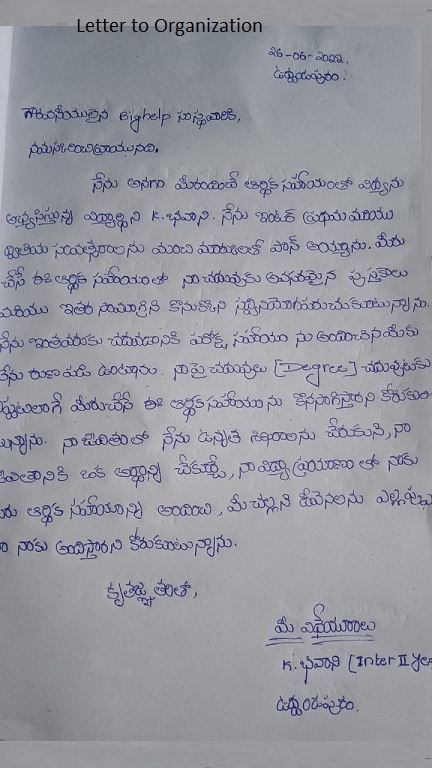 Letter to Organization
26-06-2022,
ఉద్దండపురం.
గౌరవనీయులైన Bighelp సంస్థవారికి,
నమస్కరించి వ్రాయునది.
నేను అనగా మీరందించే ఆర్థిక సహాయంతో విద్యను
అభ్యసిస్తున్న విద్యార్థిని K. భవాని. నేను ఇంటర్ ప్రథమ మరియు
ద్వితీయ సంవత్సరాలను మంచి మార్కులతో పాస్ అయ్యాను. మీరు
చేసే ఈ ఆర్థిక సహాయంతో నా చదువుకు అవసరమైన పుస్తకాలు
మరియు ఇతర సామాగ్రిని కొనుకొని సద్వినియోగపరుచుకుంటున్నాను.
నేను ఇంతవరకు చదవడానికి పరోక్ష సహాయం ను అందించిన మీకు
నేను రుణపడి ఉంటాను. నా పై చదువులు [Degree] చదువుటకు
ఇప్పటిలాగే మీరుచేసే ఈ ఆర్థిక సహాయం ను కొనసాగిస్తారని కోరుకుం
టున్నాను. నా జీవితంలో నేను ఉన్నత శిఖరాలను చేరుకుని, నా
జీవితానికి ఒక అర్థాన్ని చేకూర్చే, నా విద్యా ప్రయాణం లో నాకు
మీరు ఆర్థిక సహాయాన్ని అందించి, మీ చల్లని దీవెనలను ఎల్లప్పు
నాకు అందిస్తారని కోరుకుంటున్నాను.
కృతజ్ఞతలతో,
మీ విధేయురాలు
K. భవాని [Inter II Yea
ఉద్దండపురం.